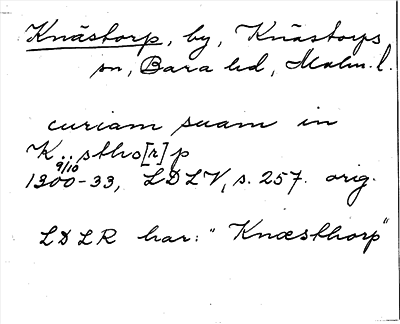 Knästorp, by, Knästorps
sn, Bara hd, Malm. l.
curiam suam in
K..stho[r]p
9/10
1300-33, LDLV, s. 257. orig.
LDLR har: "Knæsthorp"